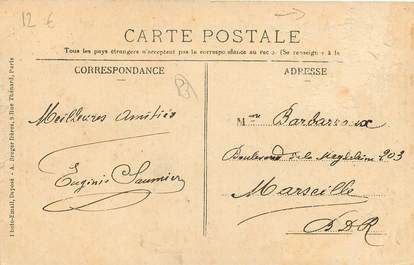 12 €
CARTE POSTALE
Tous les pays étrangers n'acceptent pas la correspondance au recto. (Se renseigner à la
CORRESPONDANCE
ADRESSE
Meilleures Amitiés
Eugénie Saumier
Mme Barbarroux
Boulevard de la Magdeleine 203
Marseille
B.D.R
Photo-Email, Déposé - A. Breger Frères, 9 Rue Thénard, Paris